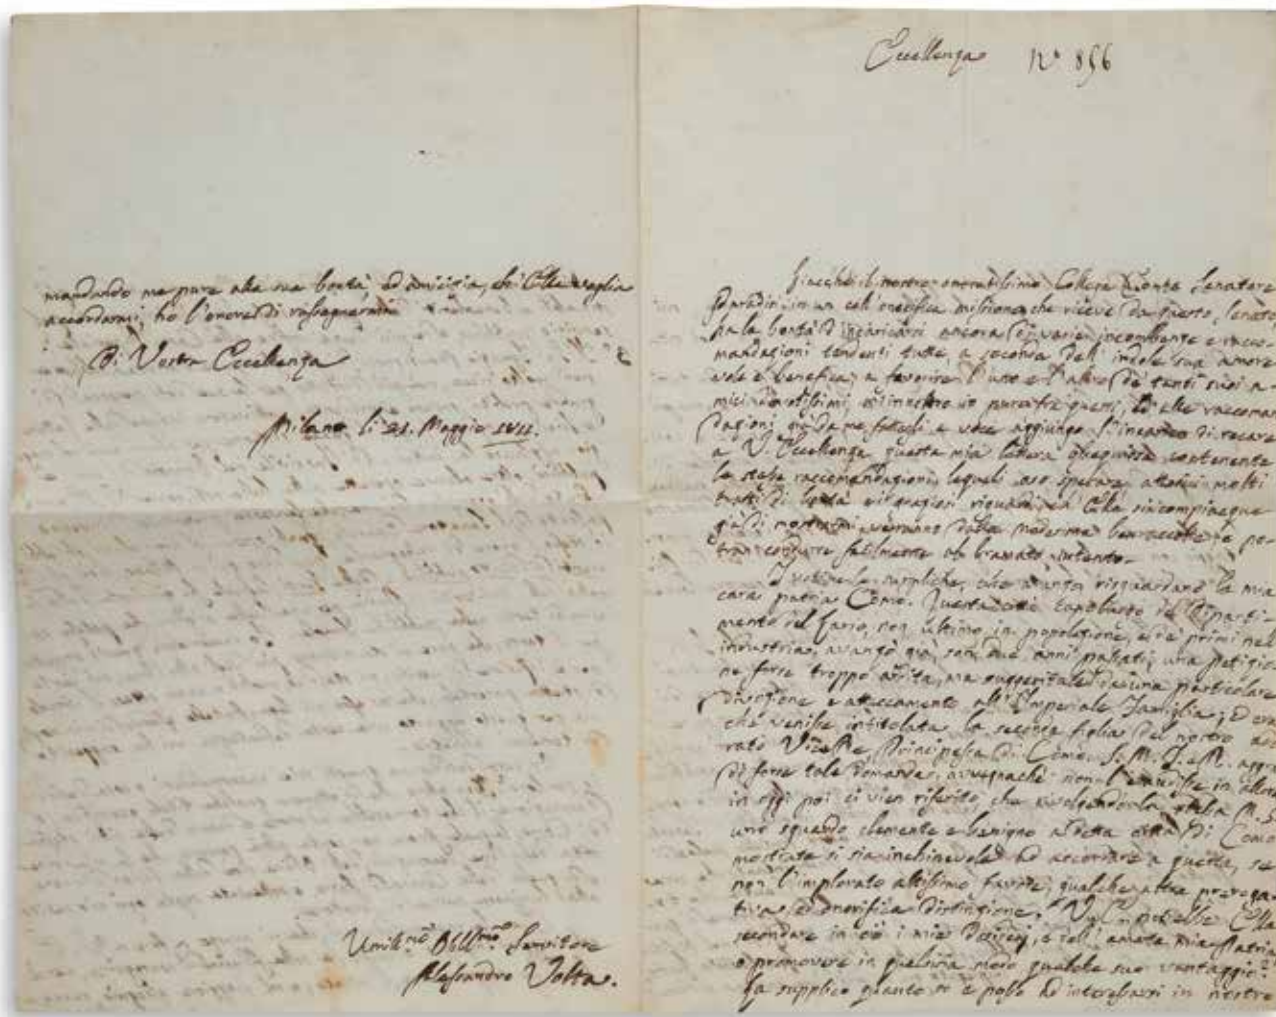 mandando me pure alla sua bontà ed amicizia, ch' Ella voglia
accordarmi, ho l'onore di rassegnarmi
Di Vostra Eccellenza
Milano li 21. Maggio 1811.
Umil.mo Obbl.mo Servitore
Alessandro Volta.
Eccellenza N.o 856
Giacchè il nostro onoratissimo Collega Conte Senatore
Paradisi in un coll' onorifica missione che riceve da questo Senato
ha la bontà d'incaricarsi ancora di varie incombenze e racco-
mandazioni tendenti tutte, a seconda dell' indole sua amore
vole e benefica, a favorire l'uno e l'altro de' tanti suoi a-
mici, io pure fra questi, ed alle raccoman
dazioni già da me fattegli a voce aggiungo l'incarico di recare
a V. Eccellenza questa mia lettera ossequiosa contenente
le stesse raccomandazioni, le quali oso sperare, attesi i molti
tratti di bontà e i graziosi riguardi, ch' Ella si compiacque
già di mostrarmi, verranno dalla medesima ben accolte, e po-
tran condurre facilmente al bramato intento.
I voti e le suppliche, che avanzo risguardano la mia
cara patria Como. Questa città Capoluogo del Diparti-
mento del Lario, non ultimo in popolazione, e de' primi nell'
industria, avanzò già, son due anni passati, una petizio-
ne forse troppo ardita, ma suggeritale da una particolare
divozione e attaccamento all' Imperiale Famiglia; ed era
che venisse intitolata la seconda figlia del nostro ado
rato Vice Re, Principessa di Como. S. M. I. e R. aggra
dì forse tale domanda, avvegnachè non l'esaudisse in allora
in oggi poi ci vien riferito, che rivolgendo la stessa M. S.
uno sguardo clemente e benigno a detta città di Como
mostrata si sia inchinevole ad accordare a questa, se
non l'implorato altissimo favore, qualche altra preroga-
tiva, ed onorifica distinzione. V. E. potrebbe Ella
secondare in ciò i miei desiderj, e dell' amata mia Patria
o promovere in qualsisia modo qualche suo vantaggio?
La supplico quanto so e posso ad interessarsi in nostro